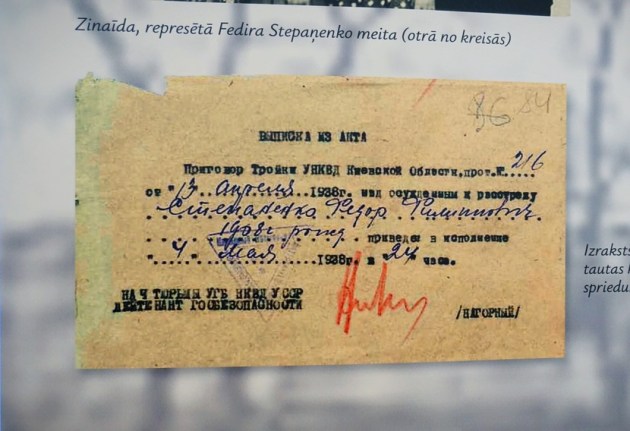 Zinaīda, represētā Fedira Stepaņenko meita (otrā no kreisās)
86 84
ВЫПИСКА ИЗ АКТА
Приговор Тройки УНКВД Киевской Области, прот.№ 216
от "17" апреля 1938г. над осужденным к расстрелу
Степаненко Федор Филиппович
1908г рожд. приведен в исполнение
"4" Мая 1938г. в 24 часа.
НАЧ ТЮРЬМЫ УГБ НКВД УССР
ЛЕЙТЕНАНТ ГОСБЕЗОПАСНОСТИ
/НАГОРНЫЙ/
Izraksts
tautas
spriedu